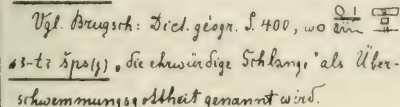 Vgl. Brugsch: Dict. géogr. S. 400, wo
s3-t3 šps(y) „die ehrwürdige Schlange" als Über-
schwemmungsgottheit genannt wird.